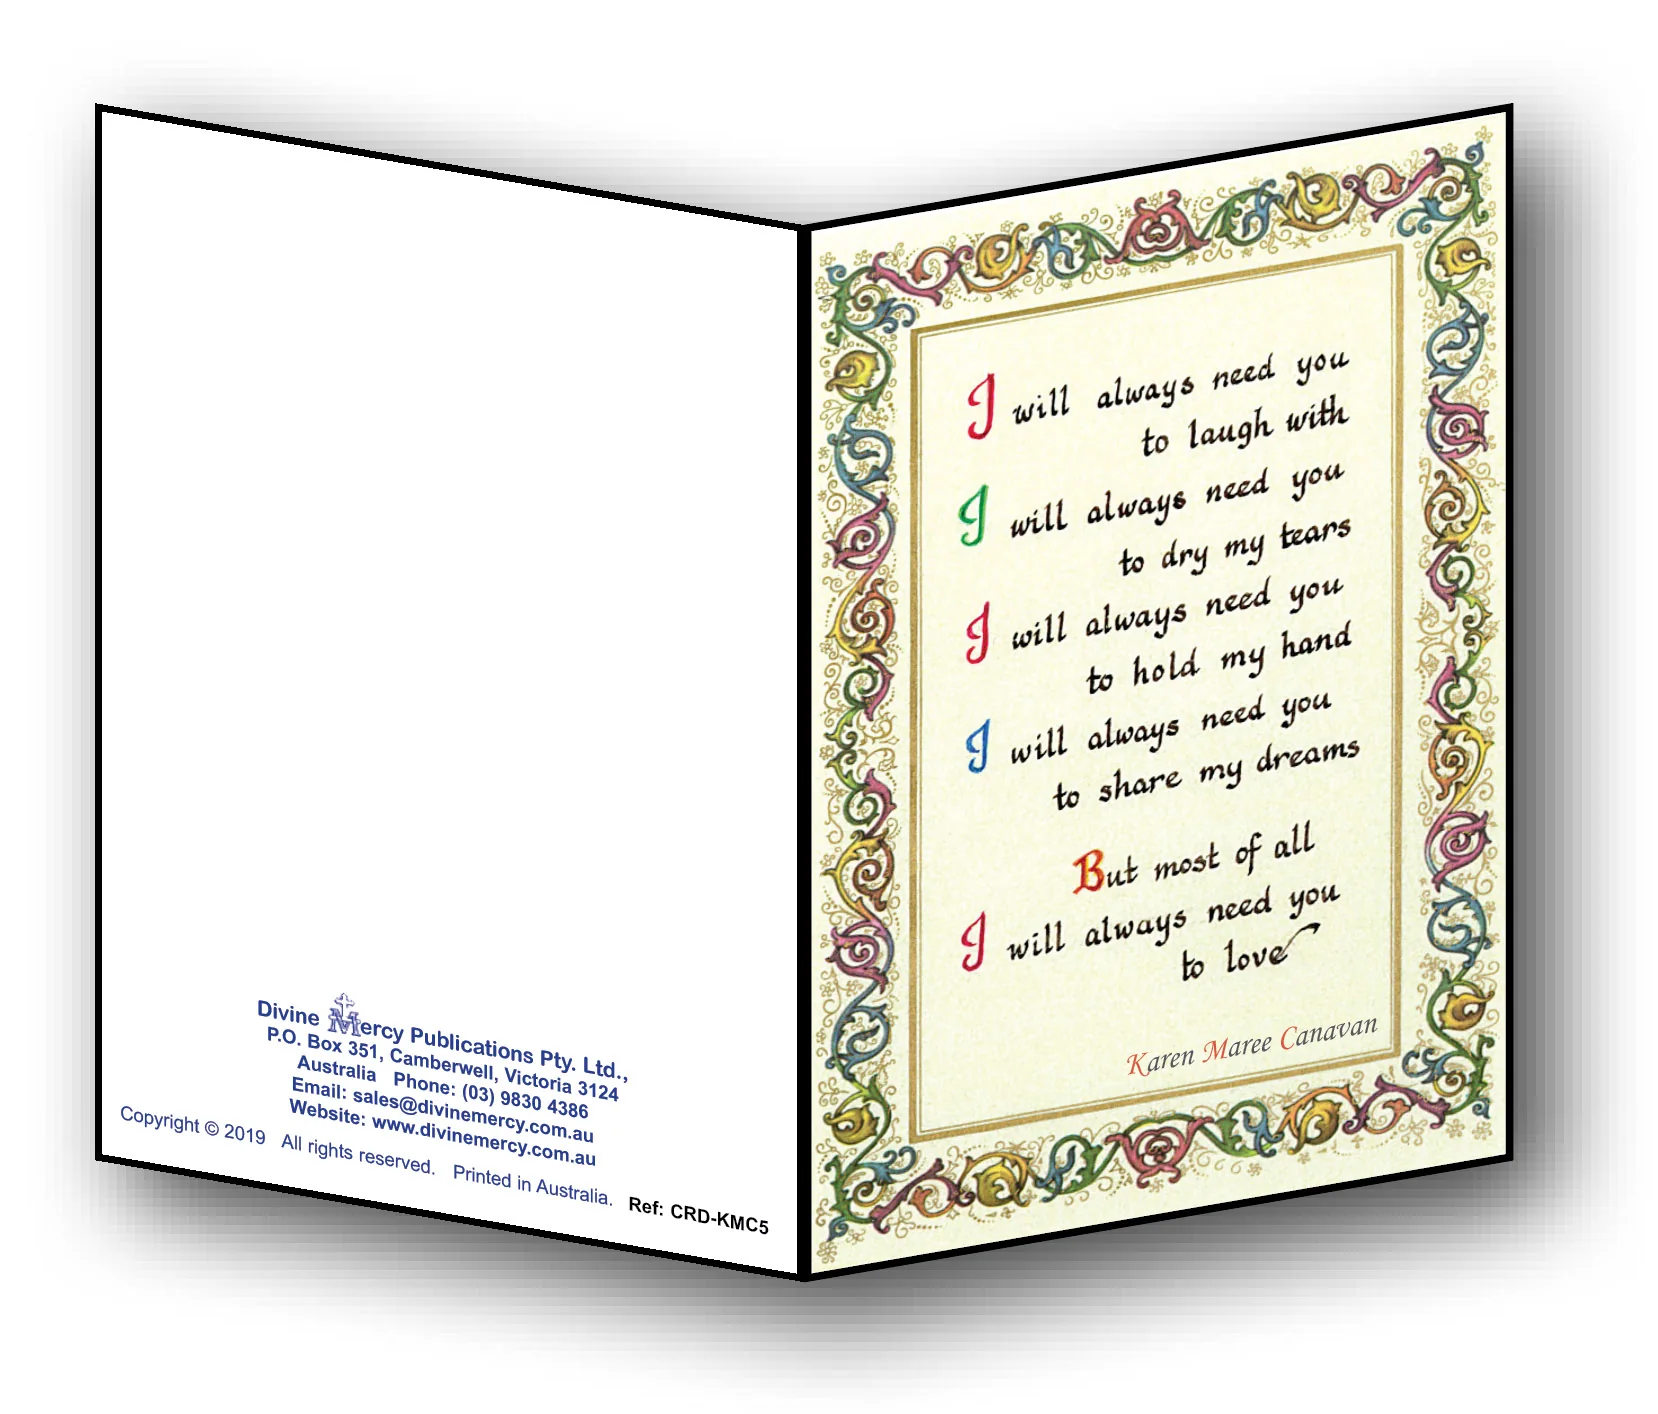 Divine Mercy Publications Pty. Ltd.,
P.O. Box 351, Camberwell, Victoria 3124
Australia Phone: (03) 9830 4386
Email: sales@divinemercy.com.au
Website: www.divinemercy.com.au
Copyright © 2019 All rights reserved. Printed in Australia. Ref: CRD-KMC5
I will always need you
to laugh with
I will always need you
to dry my tears
I will always need you
to hold my hand
I will always need you
to share my dreams
But most of all
I will always need you
to love
Karen Maree Canavan